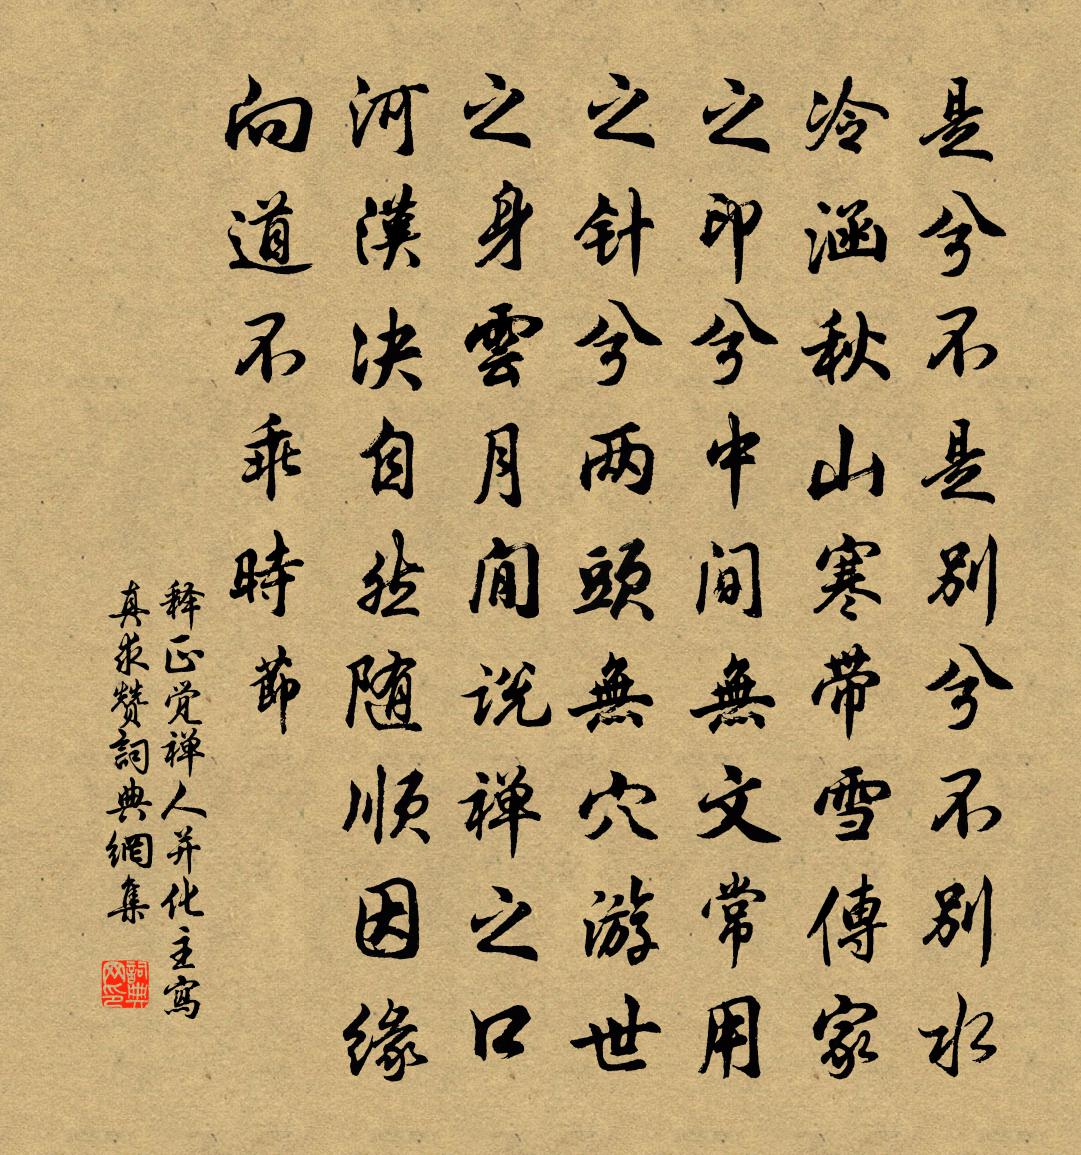 是兮不是别兮不别水
冷涵秋山寒带雪傳家
之印兮中间無文常用
之针兮两頭無穴游世
之身雲月閒说禅之口
河漢决自然随顺因缘
向道不乖時节
释正觉禅人并化主寫
真求赞詞典網集
詞典
网印